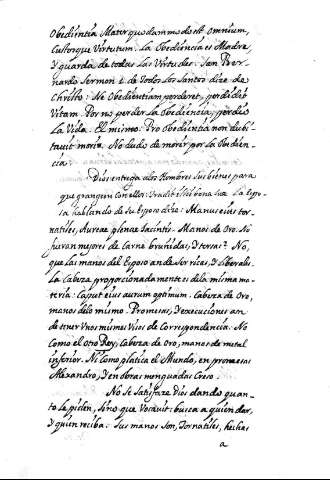 Obedientia Mater quodammodo est omnium,
Custosque Virtutum. La Obediencia es Madre,
Y guarda de todas las Virtudes. San Ber-
nardo Sermon 1. de Todos los Santos dice de
Christo: Ne Obedientiam perderet, perdidit
Vitam. Por no perder la Obediencia, perdio
la Vida. El mismo: Pro Obedientia non dubi-
tavit mori. No dudo de morir por la Obedien-
cia.
Dios entrega alos Hombres sus bienes para
que grangeen con ellos: Tradidit illi bona sua. La Espo-
sa hablando de su Esposo dice: Manus eius tor-
natiles, Aureae plenae Iacintis. Manos de Oro. No
fueran mejores de Carne bruñidas, Y tersas? No,
que las manos del Esposo an de ser ricas, Y liberales.
La Cabeza proporcionadamente es dela misma ma-
teria: Caput eius aurum optimum. Cabeza de Oro,
manos delo mismo. Promesas, Y execuciones an
de tener Unos mismos Visos de Correspondencia. No
Como el otro Rey, Cabeza de Oro, manos de metal
inferior. Ni Como platica el Mundo, en promesas
Alexandro, Y en obras menguadas Creso.
No se satisfaze Dios dando quan-
to le piden, sino que Vocavit: busca a quien dar,
Y quien reciba: sus manos son, Tornatiles, hechas
a